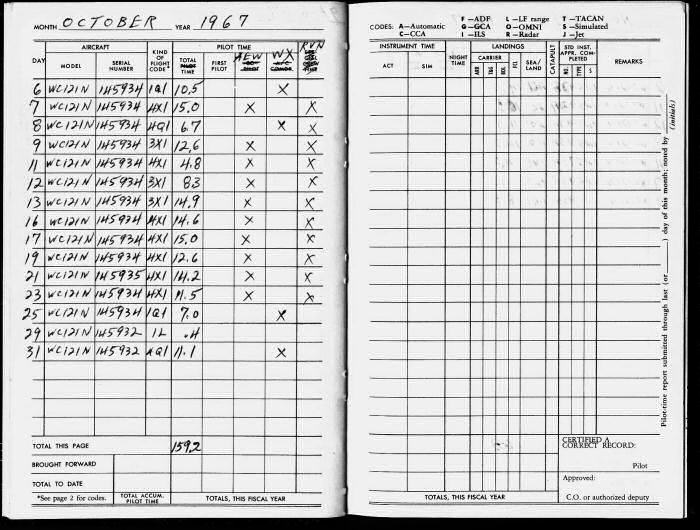 MONTH OCTOBER YEAR 1967
AIRCRAFT PILOT TIME
DAY MODEL SERIAL NUMBER KIND OF FLIGHT CODE* TOTAL PILOT TIME FIRST PILOT AEW CO-PILOT WX A/C COMDR. RVN
6 WC121N 145934 1Q1 10.5 X
7 WC121N 145934 4X1 15.0 X X
8 WC121N 145934 4Q1 6.7 X X
9 WC121N 145934 3X1 12.6 X X
11 WC121N 145934 4X1 4.8 X X
12 WC121N 145934 3X1 8.3 X X
13 WC121N 145934 3X1 14.9 X X
16 WC121N 145934 4X1 14.6 X X
17 WC121N 145934 4X1 15.0 X X
19 WC121N 145934 4X1 12.6 X X
21 WC121N 145935 4X1 14.2 X X
23 WC121N 145934 4X1 11.5 X X
25 WC121N 145934 1Q1 7.0 X
29 WC121N 145932 1L .4
31 WC121N 145932 4Q1 11.1 X
TOTAL THIS PAGE 159.2
BROUGHT FORWARD
TOTAL TO DATE
*See page 2 for codes. TOTAL ACCUM. PILOT TIME TOTALS, THIS FISCAL YEAR
CODES: A—Automatic F—ADF L—LF range T—TACAN
C—CCA G—GCA O—OMNI S—Simulated
I—ILS R—Radar J—Jet
INSTRUMENT TIME NIGHT TIME LANDINGS CATAPULT STD INST. APPR. COMPLETED REMARKS
ACT SIM CARRIER ARR T&G BOL FCL SEA/LAND NO. TYPE S
Pilot-time report submitted through last (or ) day of this month; noted by (initials)
CERTIFIED A CORRECT RECORD:
Pilot
Approved:
TOTALS, THIS FISCAL YEAR C.O. or authorized deputy